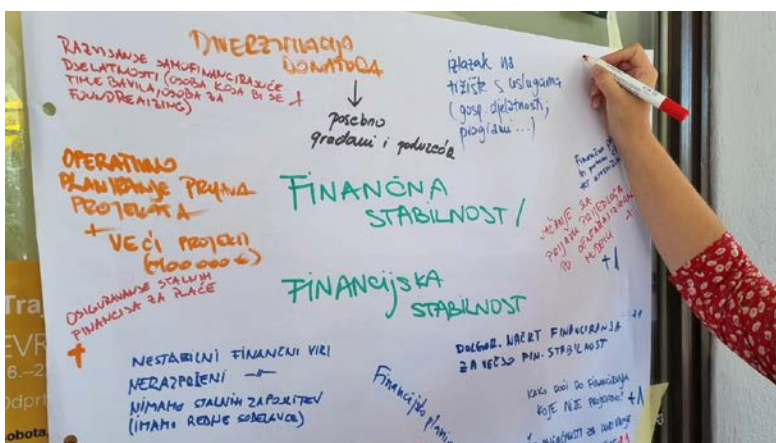 RAZVIJANJE SAMOFINANCIRAJUĆE
DJELATNOSTI (OSOBA KOJA BI SE
TIME BAVILA/OSOBA ZA
FOUNDREAIZING) +
DIVERZIFIKACIJA
DONATORA
posebno
građani i poduzeća
izlazak na
tržište s uslugama
(gosp. djelatnosti,
programi...)
OPERATIVNO
PLANIRANJE PRIJAVA
PROJEKATA
+ VEĆI PROJEKTI
FINANČNA
STABILNOST /
FINANCIJSKA
STABILNOST
JAČANJE SA
+1
OSIGURAVANJE STALNIH
FINANCIJA ZA PLAĆE
+
NESTABILNI FINANČNI VIRI
NERAZPOREĐENI
NIMAMO STALNIH ZAPOSLITEV
(IMAMO REDNE SODELAVCE)
DOLGOR. NAČRT FINANCIRANJA
ZA VEČJO FIN. STABILNOST
KAKO DOĆI DO FINANCIRANJA
KOJE NIJE PROJEKTNO? +1
Tra
EVR
6.–2
Odprt
obota,